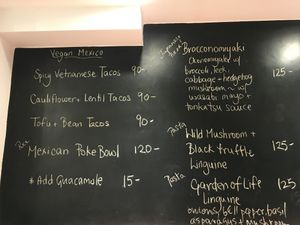 Vegan Mexico
Spicy Vietnamese Tacos 90-
Cauliflower + Lentil Tacos 90-
Tofu + Bean Tacos 90-
Mexican Poke Bowl 120-
* Add Guacamole 15-
Brocconomiyaki
Okonomiyaki w/
broccoli, leek,
cabbage + hedgehog 125-
mushroom ~ w/
wasabi mayo +
tonkatsu sauce
Pasta
Wild Mushroom +
Black truffle 125-
Linguine
Pasta
Garden of Life 125-
Linguine
onions, bell pepper, basil
asparagus + mushroom